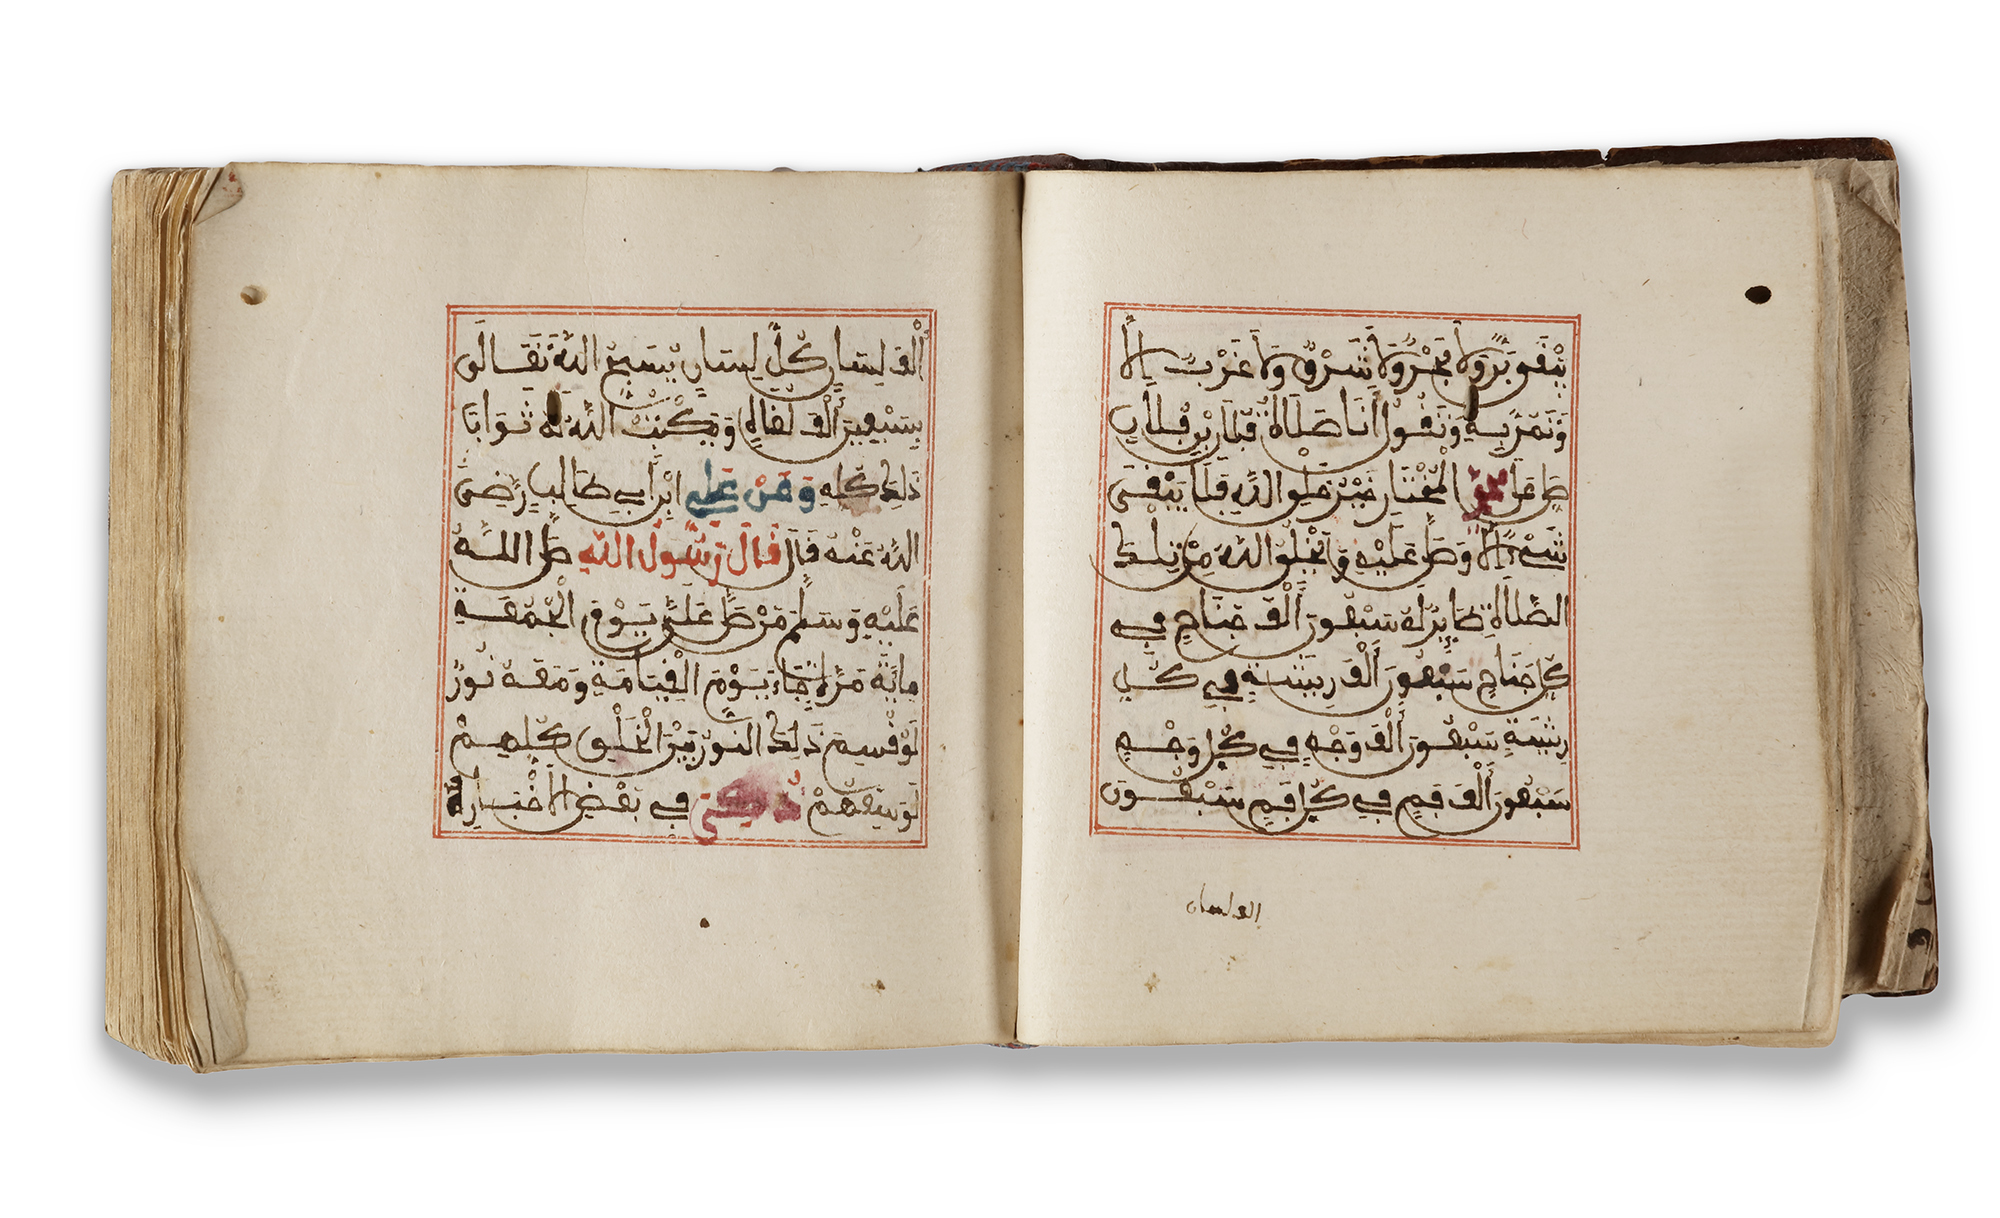 يبقى بر ولا بحر ولا شرق ولا غرب إلا
وتمر به وتقول أنا صلاة فلان بن فلان
صلى على محمد المختار خير خلق الله فلا يبقى
شيء إلا وصلى عليه ويخلق الله من تلك
الصلاة طاير له سبعون ألف جناح في
كل جناح سبعون ألف ريشة في كل
ريشة سبعون ألف وجه في كل وجه
سبعون ألف فم في كل فم سبعون
الف لسان
ألف لسان كل لسان يسبح الله تعالى
بسبعين ألف لغات ويكتب الله له ثواب
ذلك كله وعن علي ابن أبي طالب رضي
الله عنه قال قال رسول الله صلى الله
عليه وسلم من صلى علي يوم الجمعة
ماية مرة جاء يوم القيامة ومعه نور
لو قسم ذلك النور بين الخلق كلهم
لوسعهم ذكر في بعض الأخبار